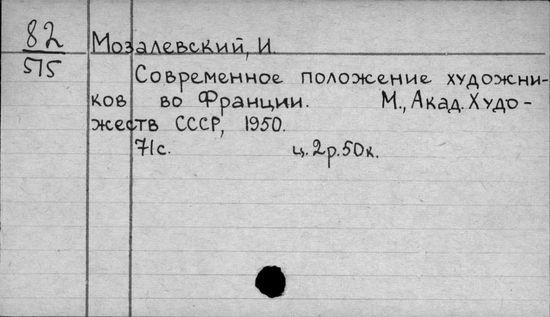 82
515
Мозалевский, И.
Современное положение художни-
ков во Франции. М., Акад. Худо-
жеств СССР, 1950.
71с. ц. 2р. 50к.